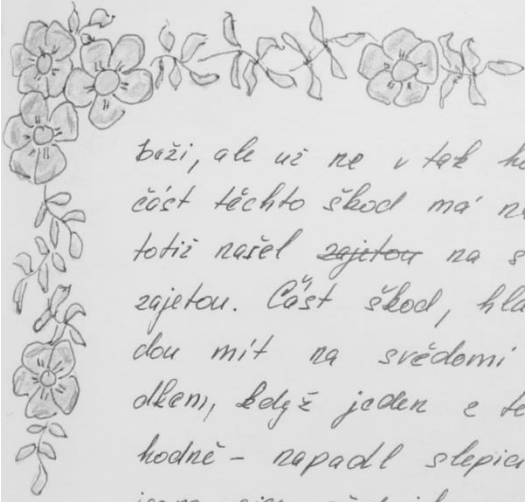 boži, ale už ne v tak
část těchto škod má
totiž našel zajetou na
zajetou. Část škod,
dou mít na svědomí
dkem, když jeden z
hodně - napadl